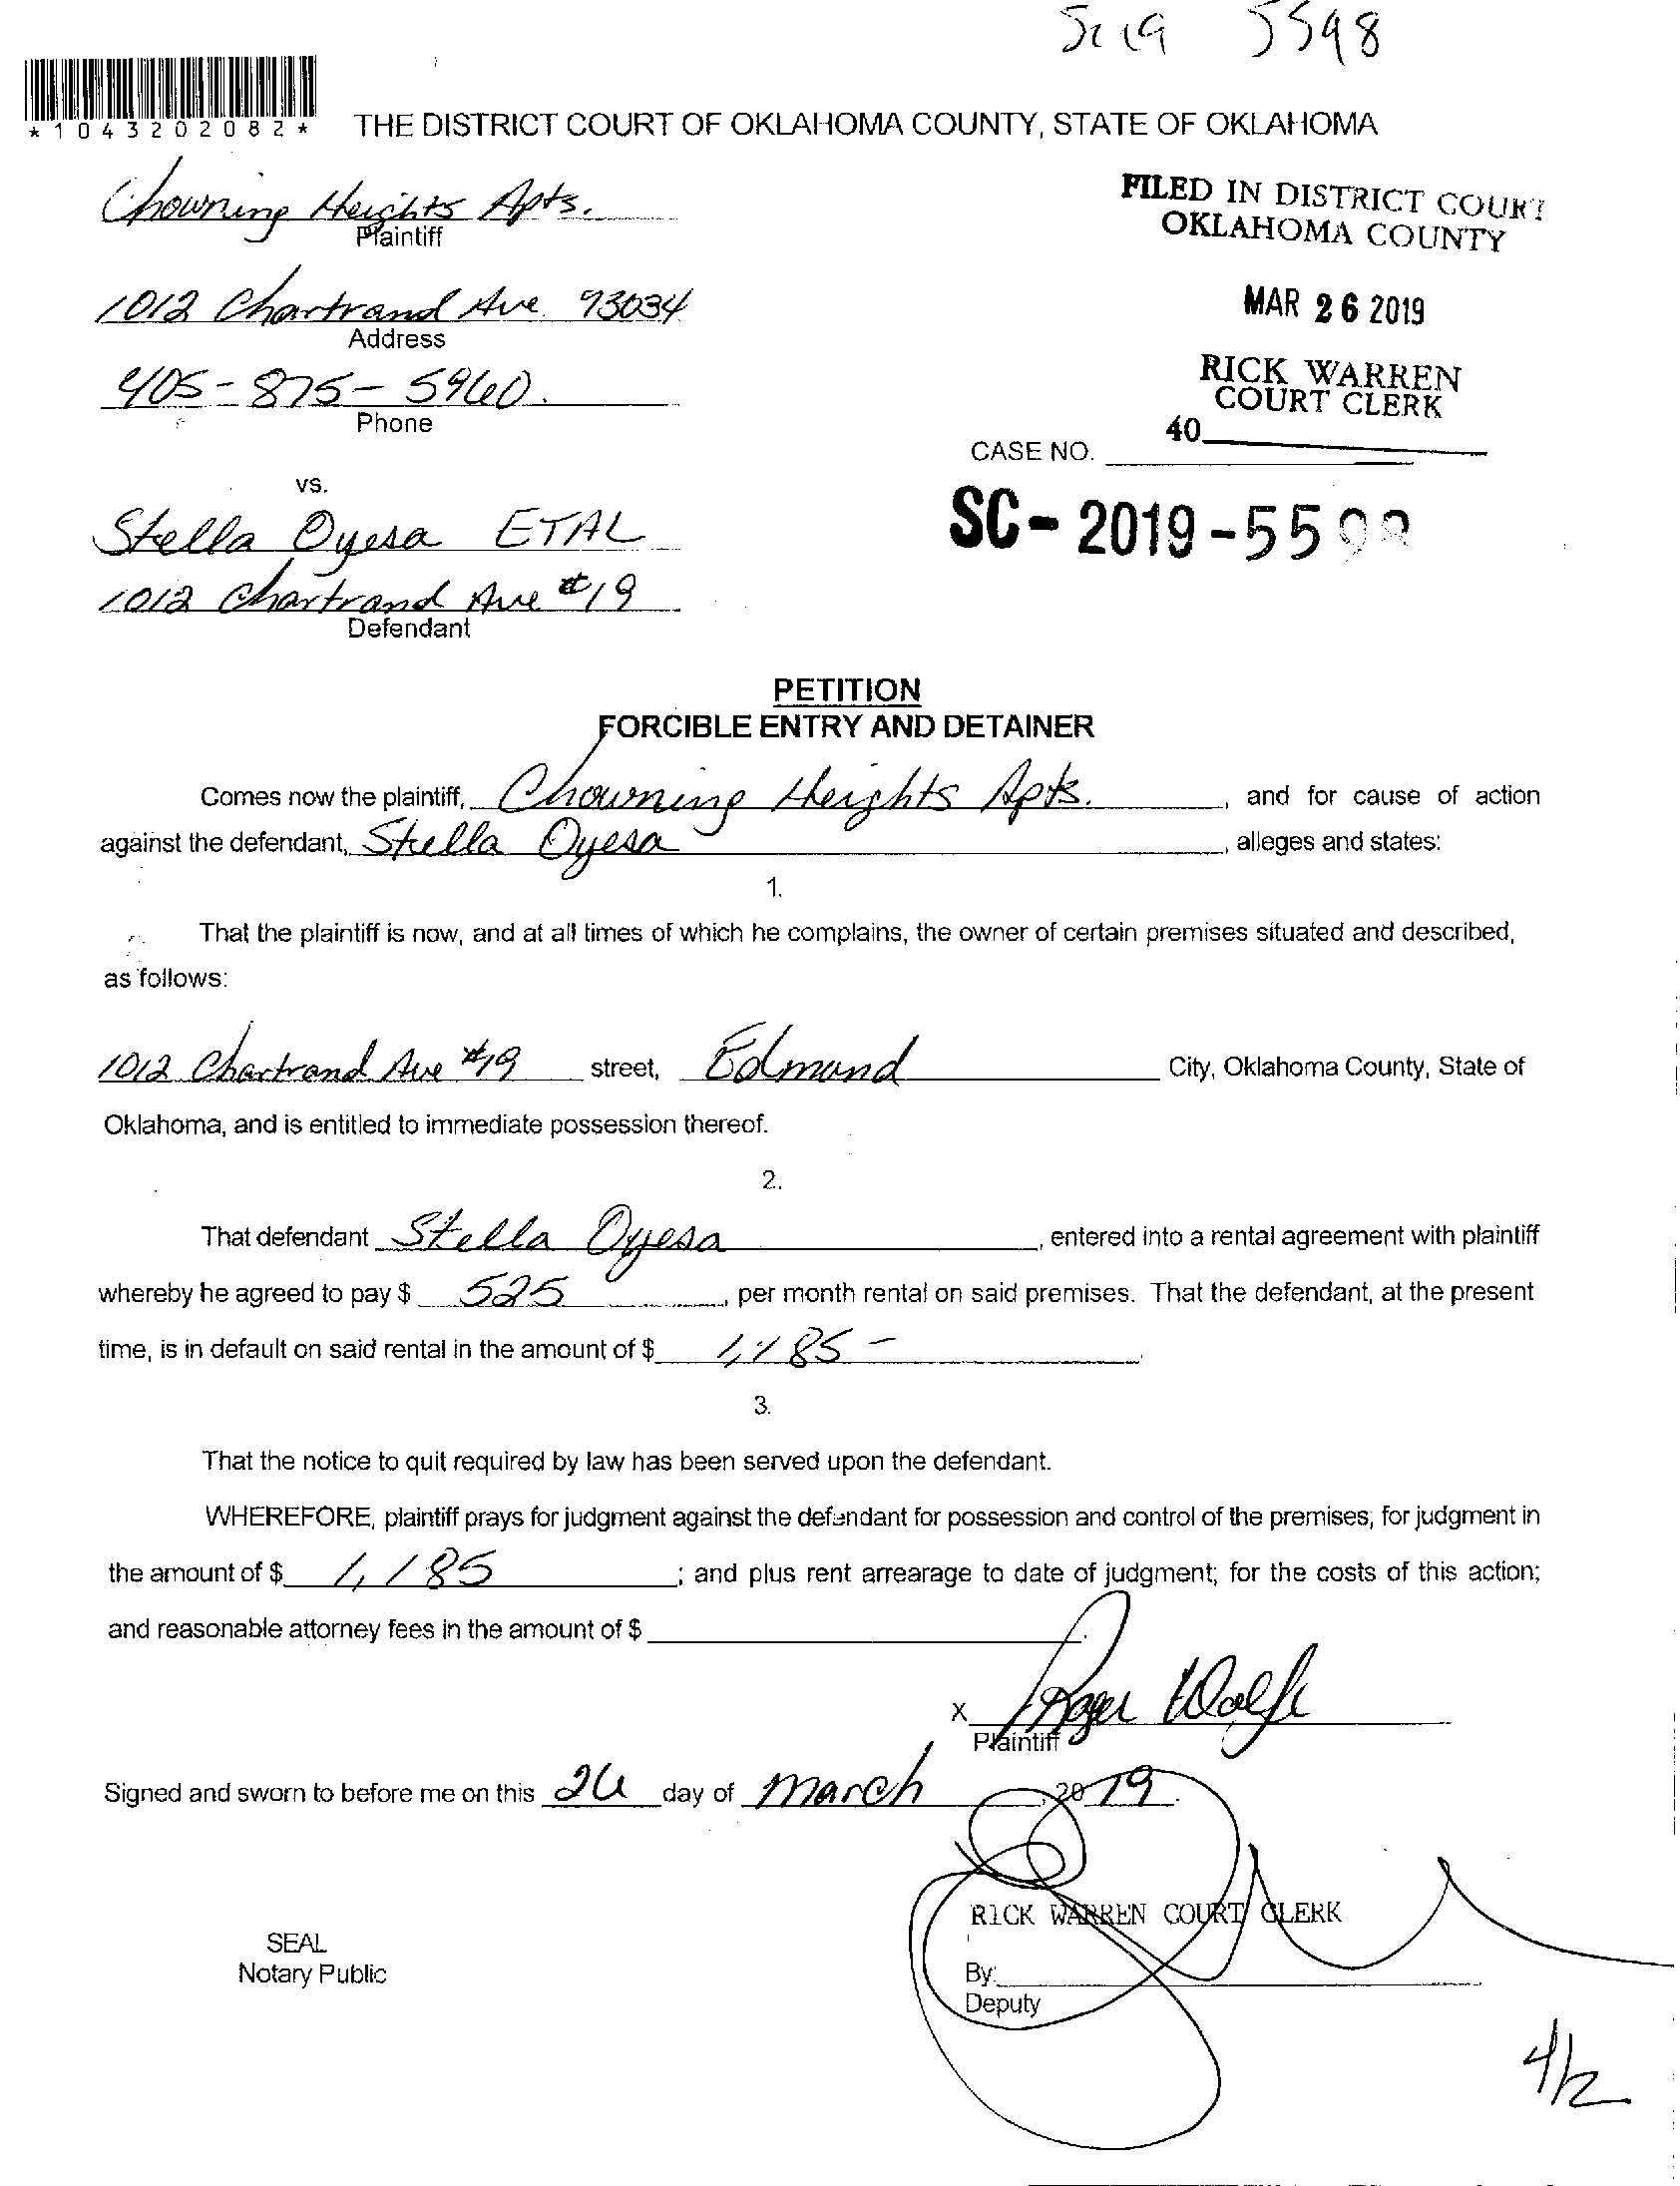 5598
*1043202082*
THE DISTRICT COURT OF OKLAHOMA COUNTY, STATE OF OKLAHOMA
Chowning Heights Apts.
Plaintiff
FILED IN DISTRICT COURT
OKLAHOMA COUNTY
1012 Chartrand Ave. 73034
Address
MAR 26 2019
405-875-5960.
Phone
RICK WARREN
COURT CLERK
40
CASE NO.
vs.
Stella Oyesa ETAL
SC-2019-5598
1012 Chartrand Ave #19
Defendant
PETITION
FORCIBLE ENTRY AND DETAINER
Comes now the plaintiff, Chowning Heights Apts. , and for cause of action
against the defendant, Stella Oyesa , alleges and states:
1.
That the plaintiff is now, and at all times of which he complains, the owner of certain premises situated and described,
as follows:
1012 Chartrand Ave #19 street, Edmund City, Oklahoma County, State of
Oklahoma, and is entitled to immediate possession thereof.
2.
That defendant Stella Oyesa , entered into a rental agreement with plaintiff
whereby he agreed to pay $ 525 , per month rental on said premises. That the defendant, at the present
time, is in default on said rental in the amount of $ 1,185- .
3.
That the notice to quit required by law has been served upon the defendant.
WHEREFORE, plaintiff prays for judgment against the defendant for possession and control of the premises; for judgment in
the amount of $ 1,185 ; and plus rent arrearage to date of judgment; for the costs of this action;
and reasonable attorney fees in the amount of $ .
x Roger Wolfe
Plaintiff
Signed and sworn to before me on this 26 day of march , 2019.
RICK WARREN COURT CLERK
SEAL
Notary Public
By:
Deputy
4/2